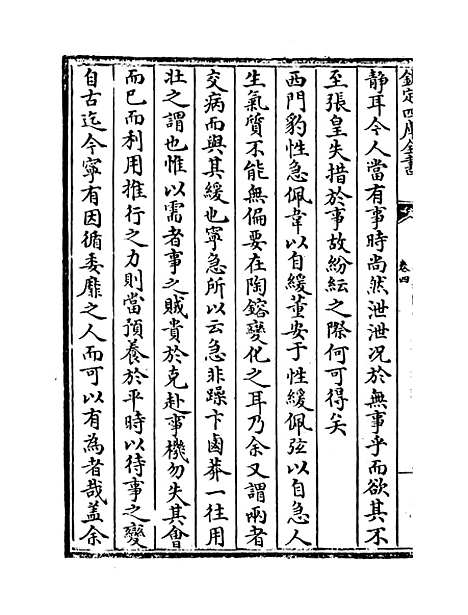 欽定四庫全書
卷四
靜耳令人當有事時尚然泄泄况於無事乎而欲其不
至張皇失措於事故紛紜之際何可得矣
西門豹性急佩韋以自緩董安于性緩佩弦以自急人
生氣質不能無偏要在陶鎔變化之耳乃余又謂兩者
交病而與其緩也寧急所以云急非躁卞鹵莽一往用
壯之謂也惟以需者事之賊貴於克赴事機勿失其會
而已而利用推行之力則當預養於平時以待事之變
自古迄今寧有因循委靡之人而可以有為者哉盖余